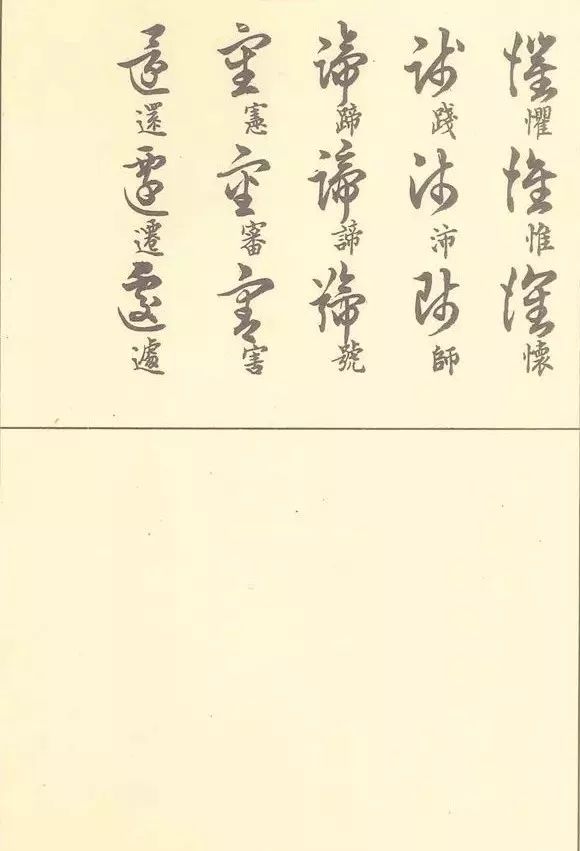 懼惟懷
踐沛師
蹄諦號
憲審害
還遷遽